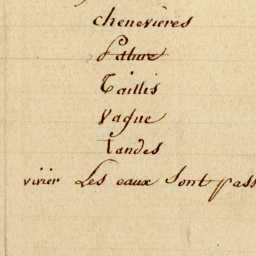 chenevières
Pature
Taillis
Vague
Landes
vivier Les eaux sont pass